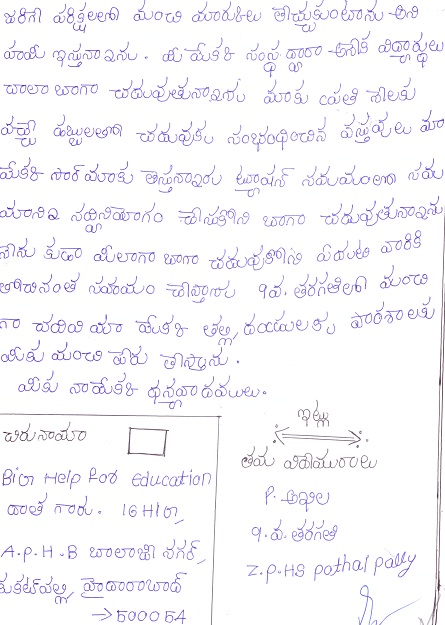 జరిగే పరీక్షలలో మంచి మార్కులు తెచ్చుకుంటాను అని
హామీ ఇస్తున్నాను. మీ మేకల సంస్థ ద్వారా అనేక విద్యార్థులు
చాలా బాగా చదువుతున్నారు మాకు ప్రతి నెలకు
వచ్చే డబ్బులతో చదువుకు సంబంధించిన వస్తువులు మా
మేకల సార్ మాకు తెస్తున్నారు ట్యూషన్ సమయంలో సమ
యానికి సద్వినియోగం చేసుకొని బాగా చదువుతున్నాను
నేను కుడా మీలాగా బాగా చదువుకొని పేదల వారికి
తోచినంత సహాయం చేస్తాను 9వ. తరగతిలో మంచి
గా చదివి మా మేకల తల్లి, దయులకు పాఠశాలకు
మీకు మంచి పేరు తెస్తాను.
మీకు నా మేకల ధన్యవాదములు.
చిరునామా
Big Help For education
దాత గారు. 16HIG,
A.P.H.B బాలాజీ నగర్,
కుకట్‌పల్లి, హైదరాబాద్
→500054
ఇట్లు
తమ విధేయురాలు
P. అఖిల
9.వ. తరగతి
Z.P.HS pathal pally